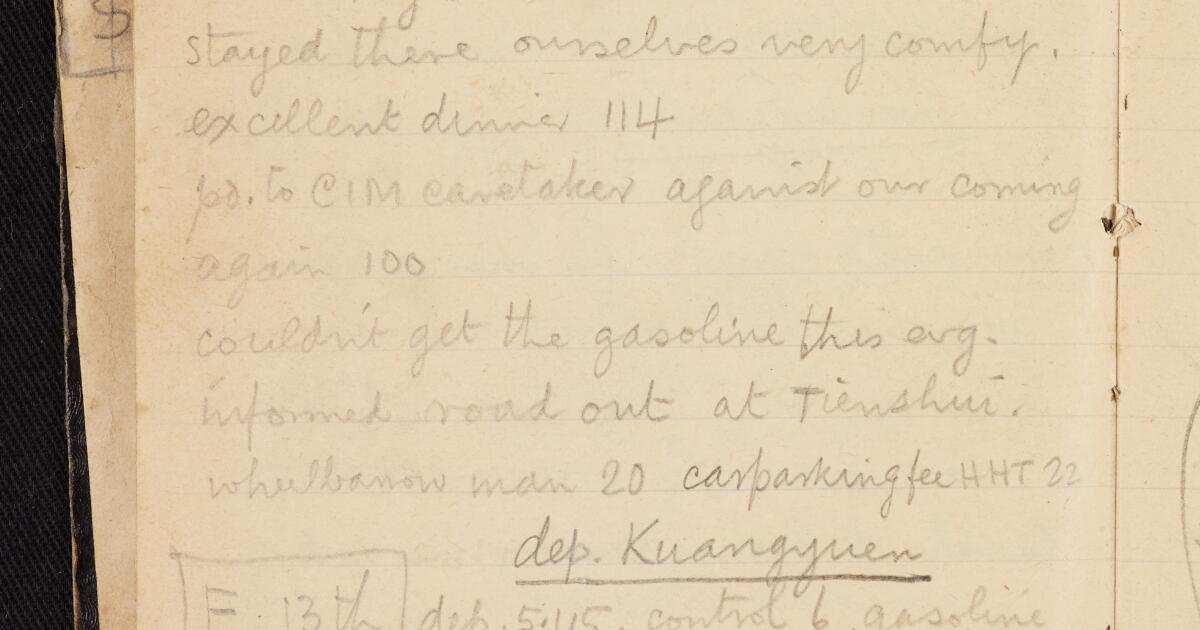 $
stayed there ourselves very comfy.
excellent dinner 114
pd. to CIM caretaker against our coming
again 100
couldn't get the gasoline this evg.
informed road out at Tienshui.
wheelbarrow man 20 carparking fee HHT 22
dep. Kuangyuen
F. 13th dep. 5.45. control 6 gasoline